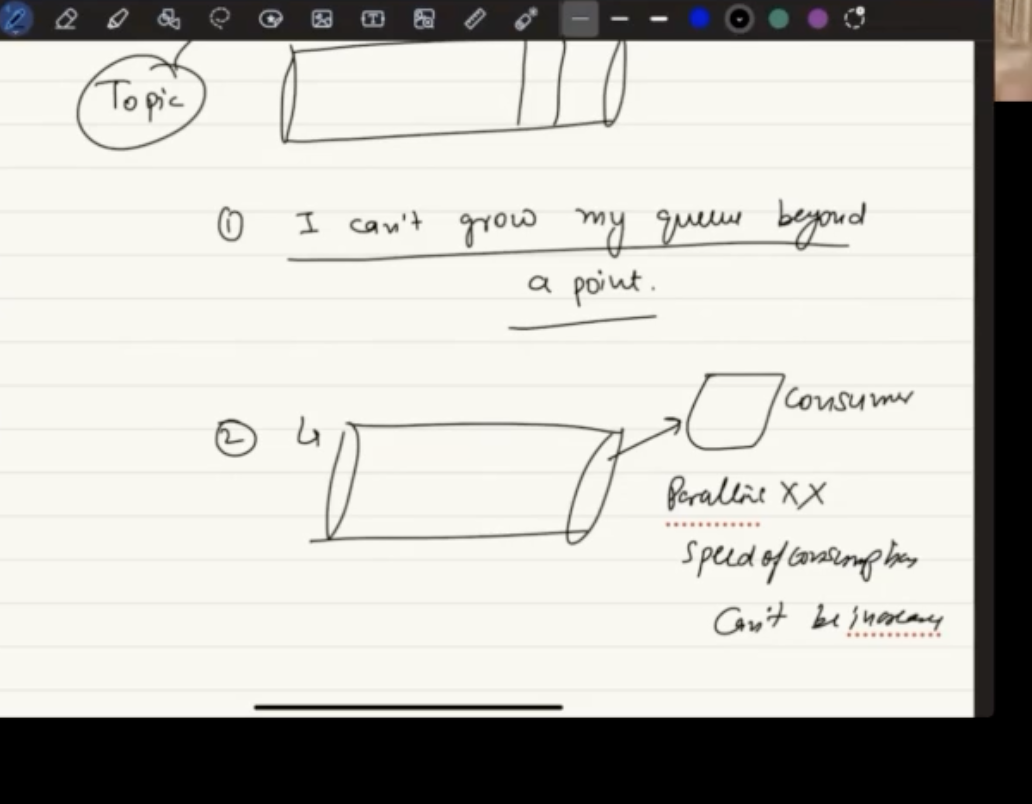 Topic
① I can't grow my queue beyond
a point.
② 4
Consumer
Parallize XX
Speed of consumption
Can't be increase